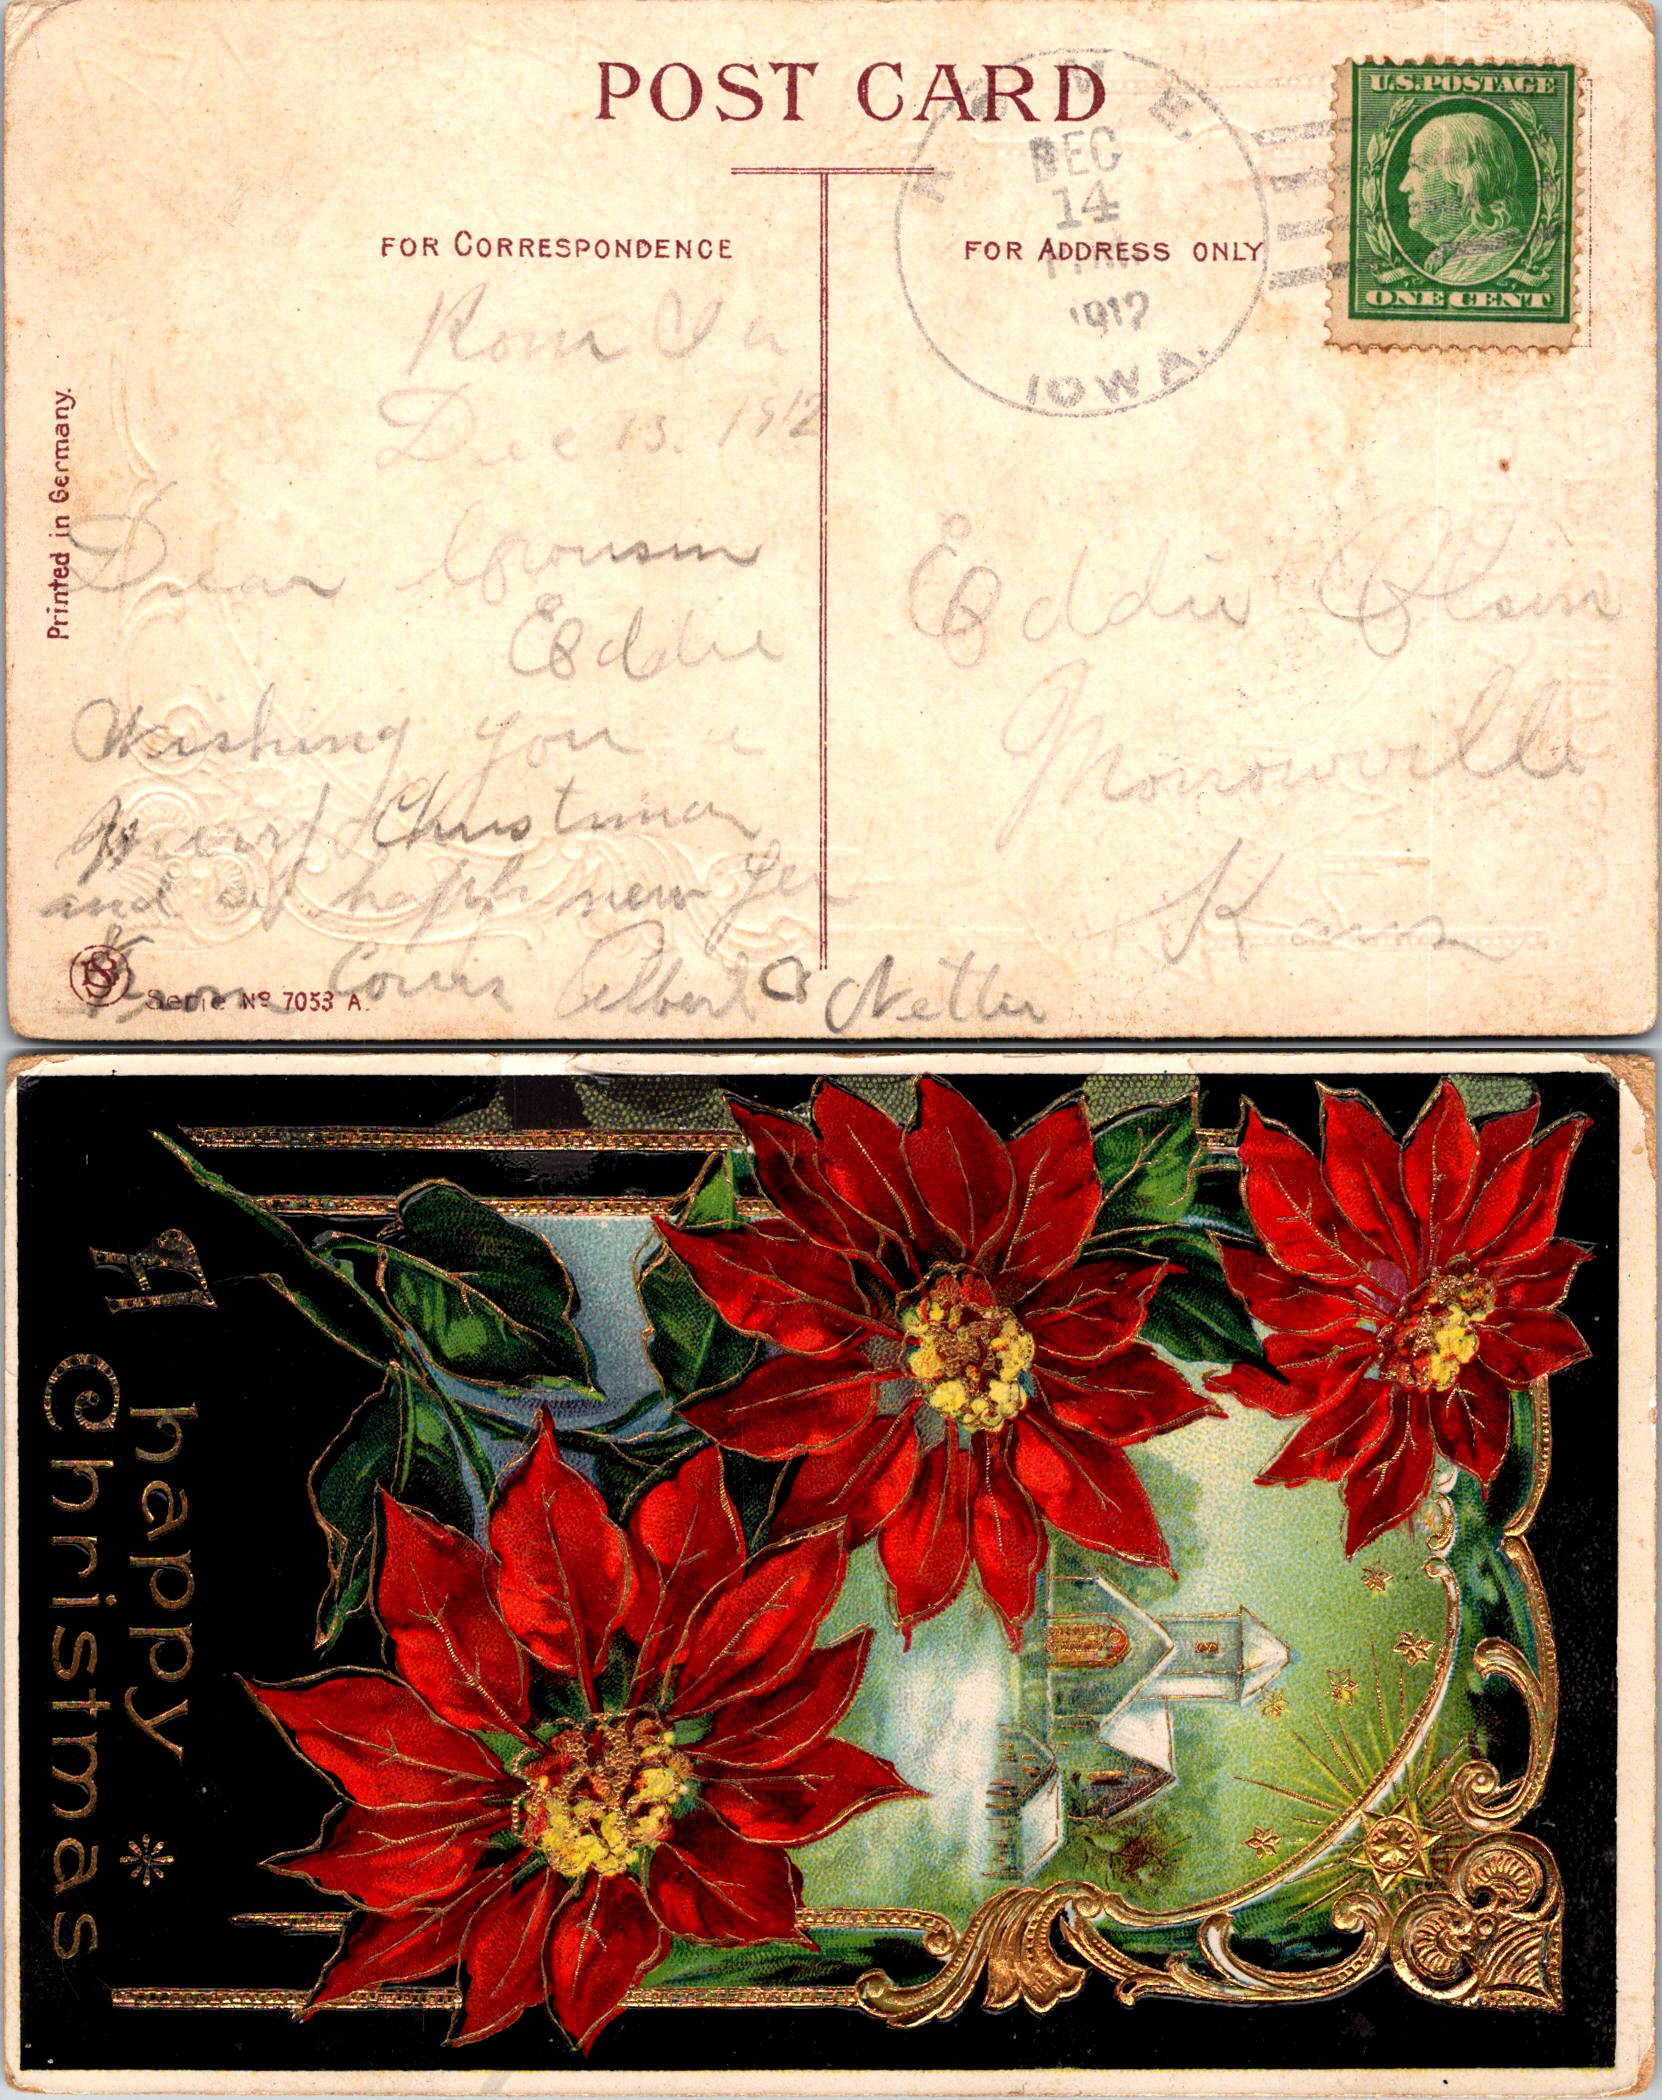 POST CARD
U.S. POSTAGE
ONE CENT
DEC
14
1912
IOWA.
FOR CORRESPONDENCE
FOR ADDRESS ONLY
Printed in Germany.
Dec 13. 1912
Dear Cousin
Eddie
Wishing you a
Merry Christmas
and a happy new yer
From Louis Albert & Nettie
BS
Serie Nº 7053 A.
Eddie Olsen
Morrowville
Kans
A
happy
Christmas